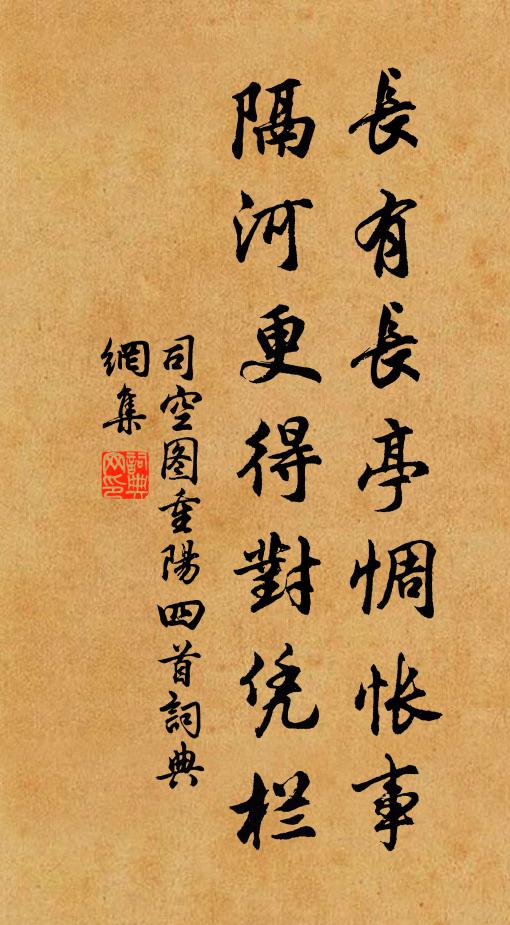 長有長亭惆悵事
隔河更得對凭栏
司空图重陽四首詞典
網集
詞典
网印